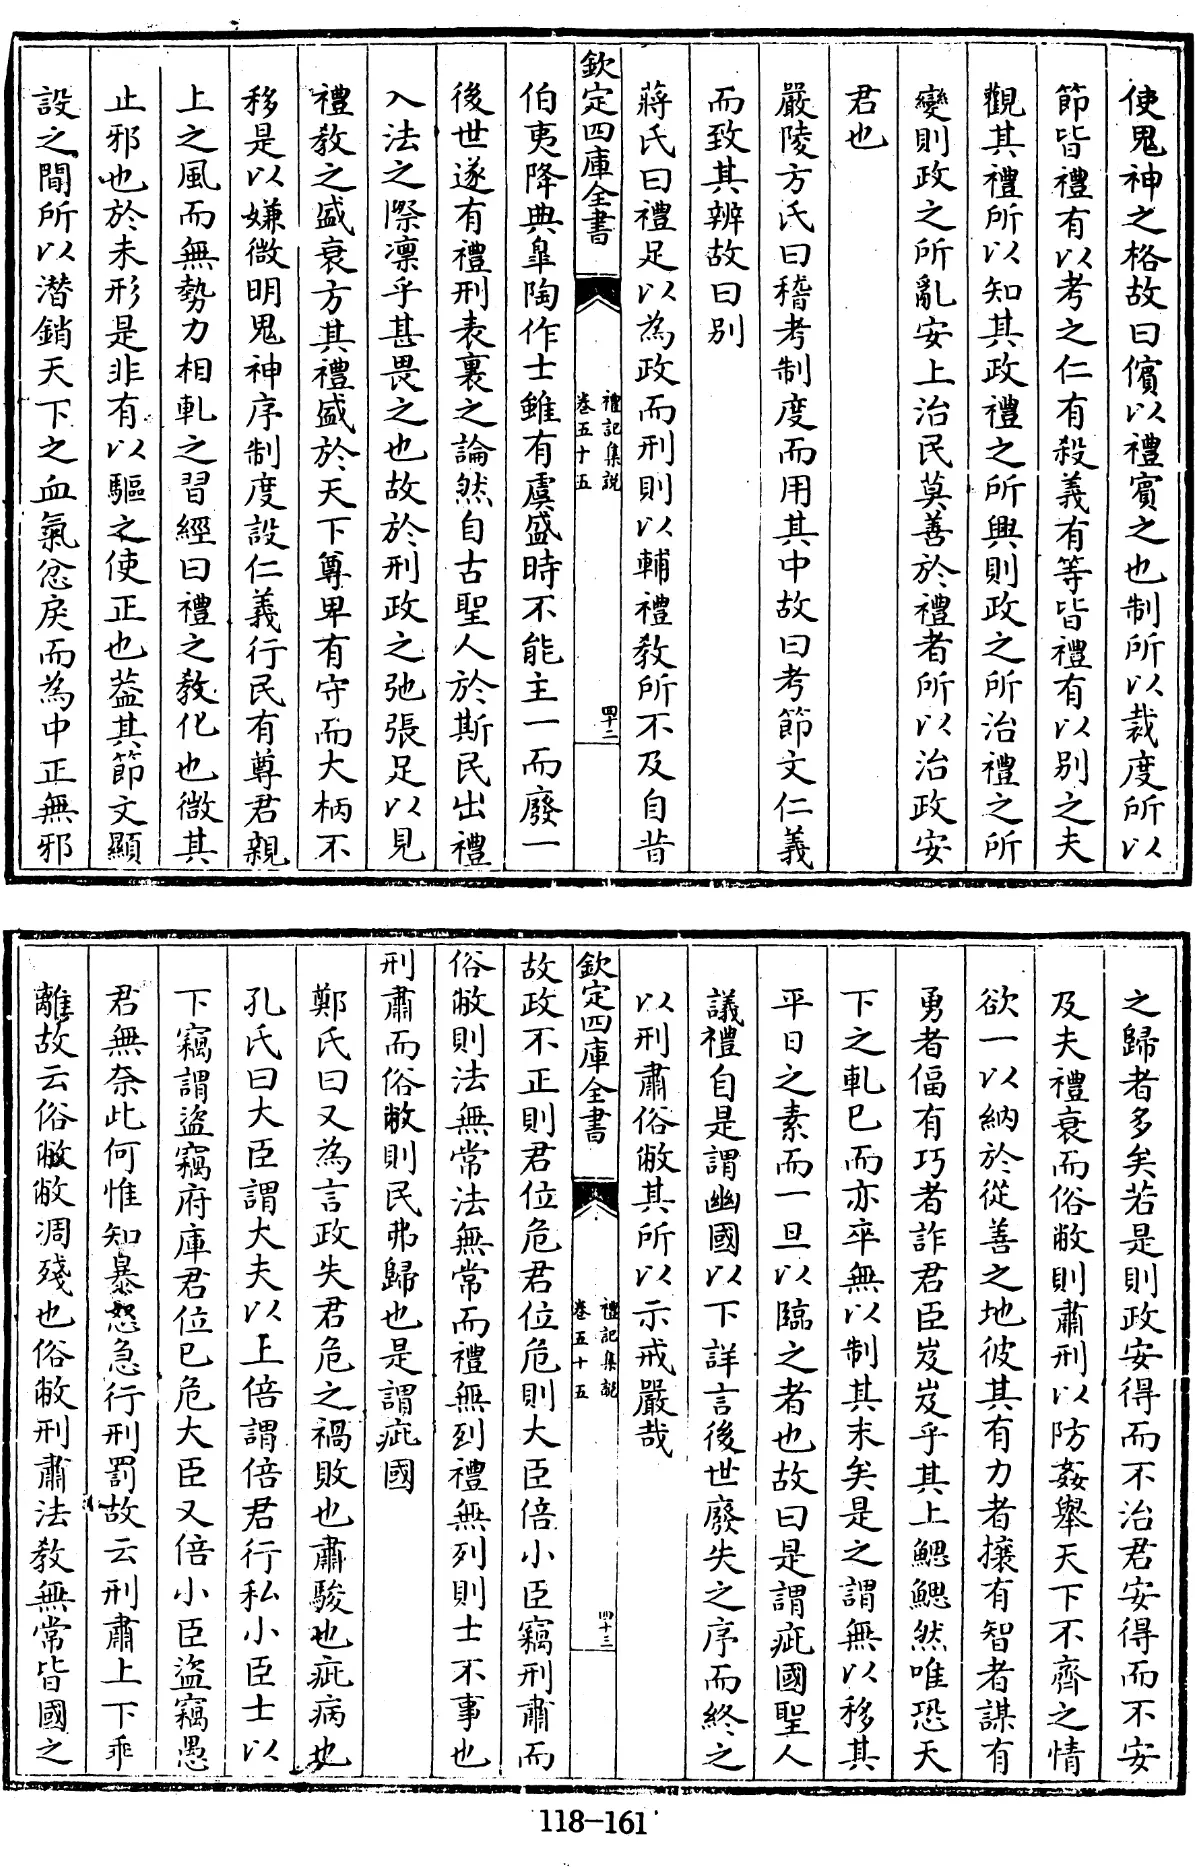 使鬼神之格故曰儐以禮賓之也制所以裁度所以
節皆禮有以考之仁有殺義有等皆禮有以別之夫
觀其禮所以知其政禮之所興則政之所治禮之所
變則政之所亂安上治民莫善於禮者所以治政安
君也
嚴陵方氏曰稽考制度而用其中故曰考節文仁義
而致其辨故曰别
蔣氏曰禮足以為政而刑則以輔禮教所不及自昔
欽定四庫全書
禮記集說
卷五十五
四十二
伯夷降典臯陶作士雖有虞盛時不能主一而廢一
後世遂有禮刑表裏之論然自古聖人於斯民出禮
入法之際凛乎甚畏之也故於刑政之弛張足以見
禮教之盛衰方其禮盛於天下尊卑有守而大柄不
移是以嫌微明鬼神序制度設仁義行民有尊君親
上之風而無勢力相軋之習經曰禮之教化也微其
止邪也於未形是非有以驅之使正也葢其節文顯
設之間所以潜銷天下之血氣忿戾而為中正無邪
之歸者多矣若是則政安得而不治君安得而不安
及夫禮衰而俗敝則肅刑以防姦舉天下不齊之情
欲一以納於從善之地彼其有力者攘有智者謀有
勇者偪有巧者詐君臣岌岌乎其上鰓鰓然唯恐天
下之軋已而亦卒無以制其末矣是之謂無以移其
平日之素而一旦以臨之者也故曰是謂疵國聖人
議禮自是謂幽國以下詳言後世廢失之序而終之
以刑肅俗敝其所以示戒嚴哉
欽定四庫全書
禮記集說
卷五十五
四十三
故政不正則君位危君位危則大臣倍小臣竊刑肅而
俗敝則法無常法無常而禮無列禮無列則士不事也
刑肅而俗敝則民弗歸也是謂疵國
鄭氏曰又為言政失君危之禍敗也肅駿也疵病也
孔氏曰大臣謂大夫以上倍謂倍君行私小臣士以
下竊謂盜竊府庫君位已危大臣又倍小臣盜竊愚
君無奈此何惟知暴怒急行刑罰故云刑肅上下乖
離故云俗敝敝凋殘也俗敝刑肅法教無常皆國之
118-161